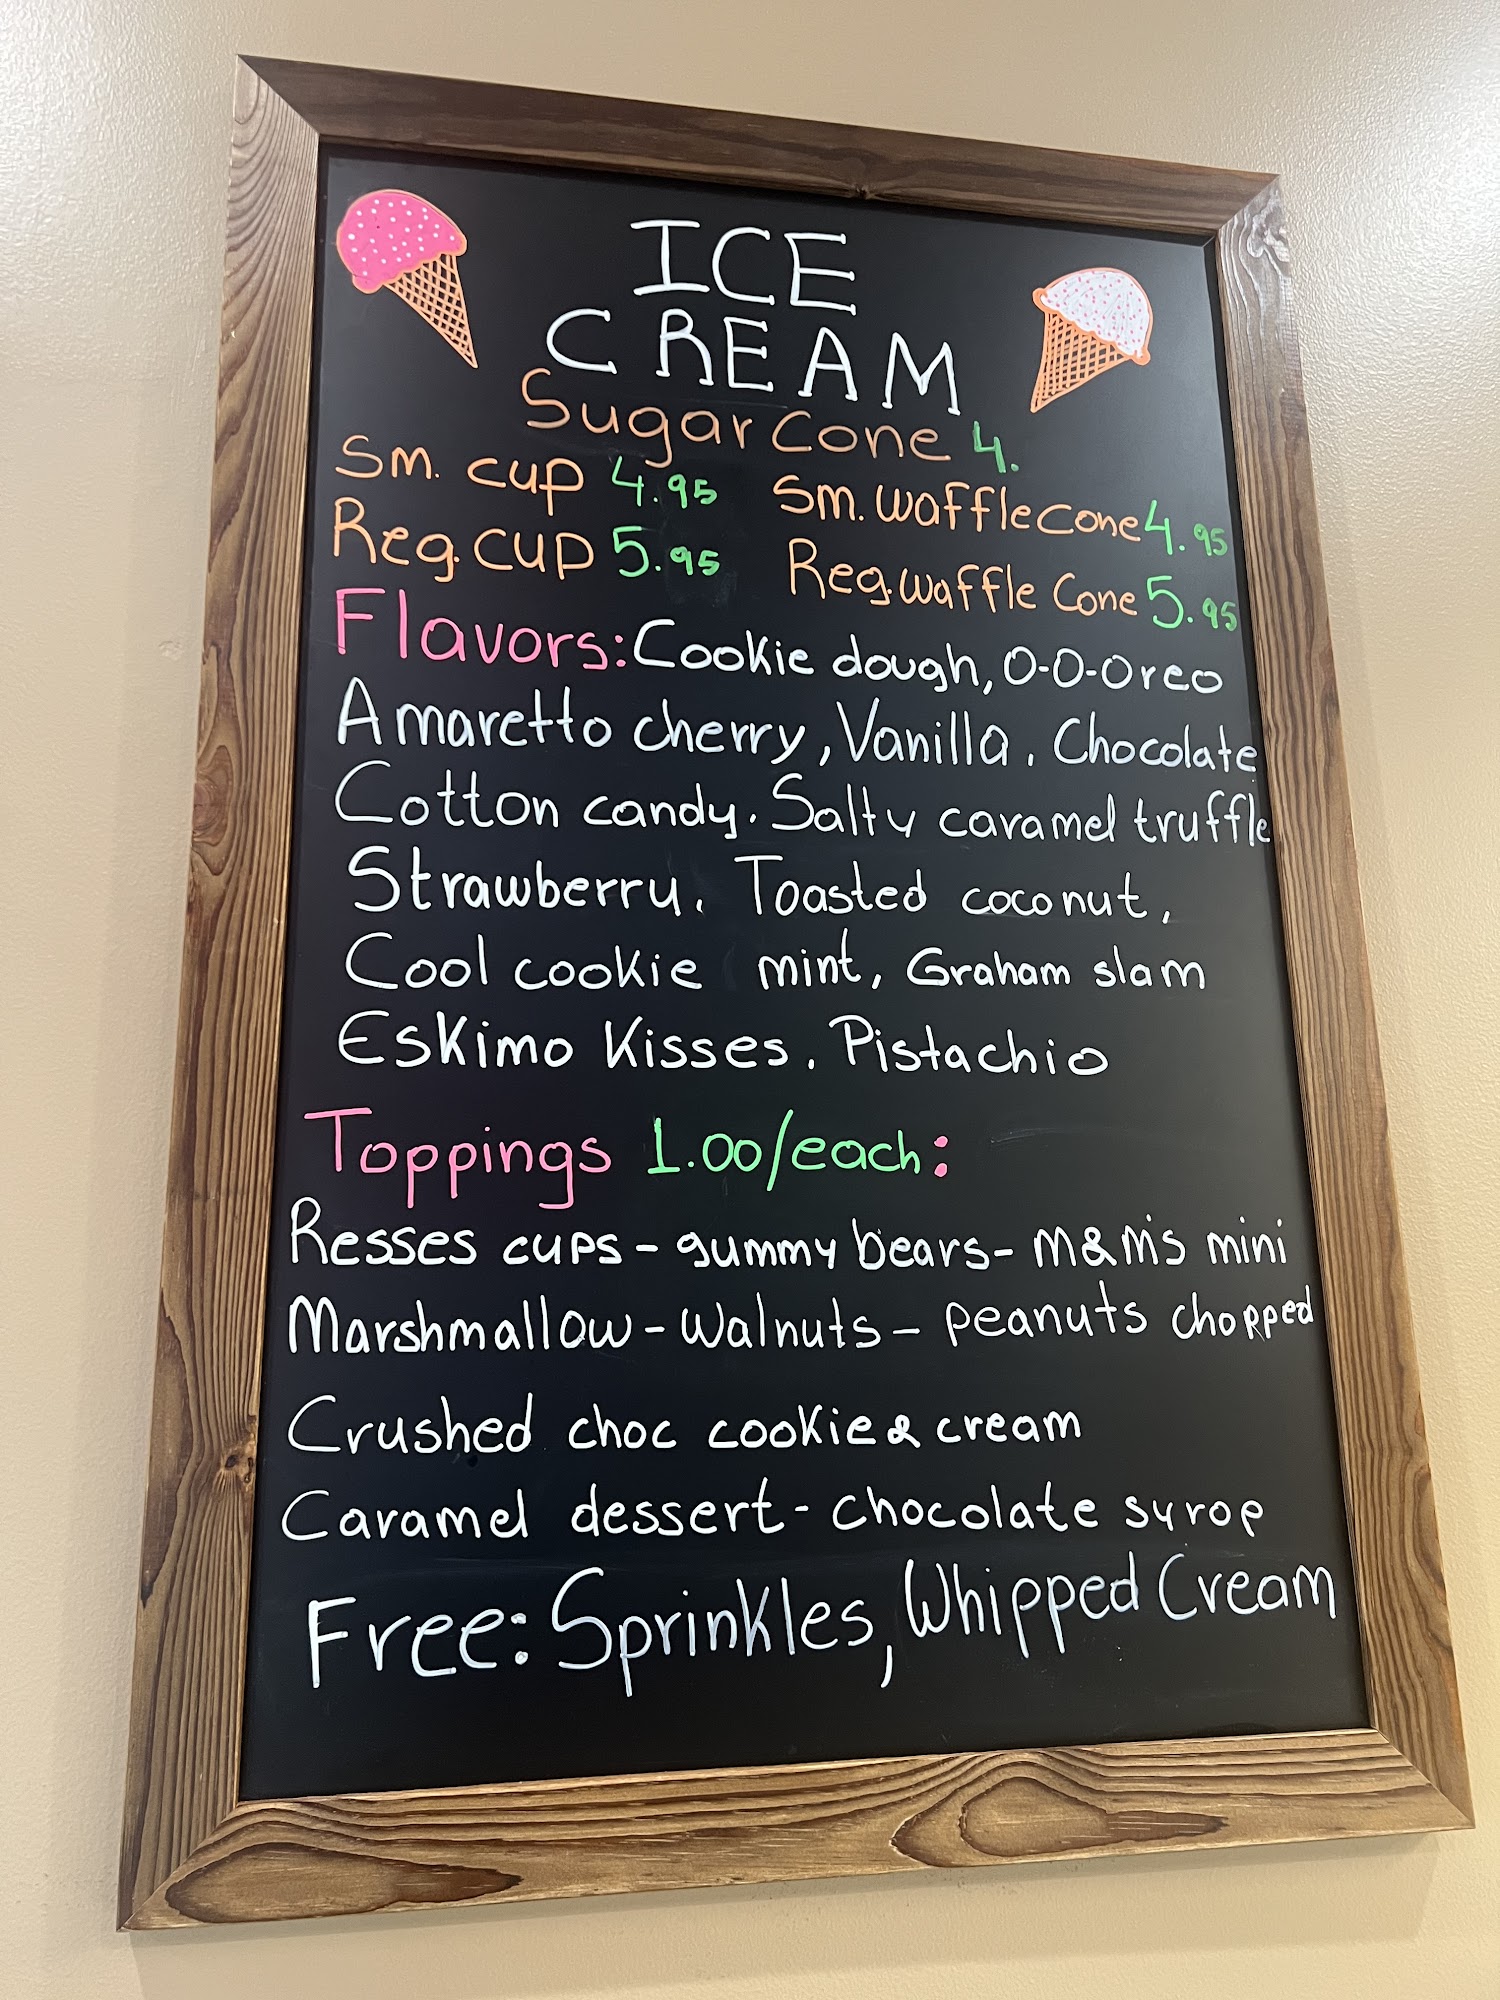 ICE
CREAM
Sugar cone 4.
Sm. cup 4.95 Sm. waffle cone 4.95
Reg. cup 5.95 Reg. waffle Cone 5.95
Flavors: Cookie dough, O-O-Oreo
Amaretto cherry, Vanilla, Chocolate
Cotton candy. Salty caramel truffle
Strawberry, Toasted coconut,
Cool cookie mint, Graham slam
Eskimo Kisses, Pistachio
Toppings 1.00/each:
Resses cups - gummy bears - M&M's mini
Marshmallow - Walnuts - peanuts chopped
Crushed choc cookie & cream
Caramel dessert - chocolate syrop
Free: Sprinkles, Whipped Cream